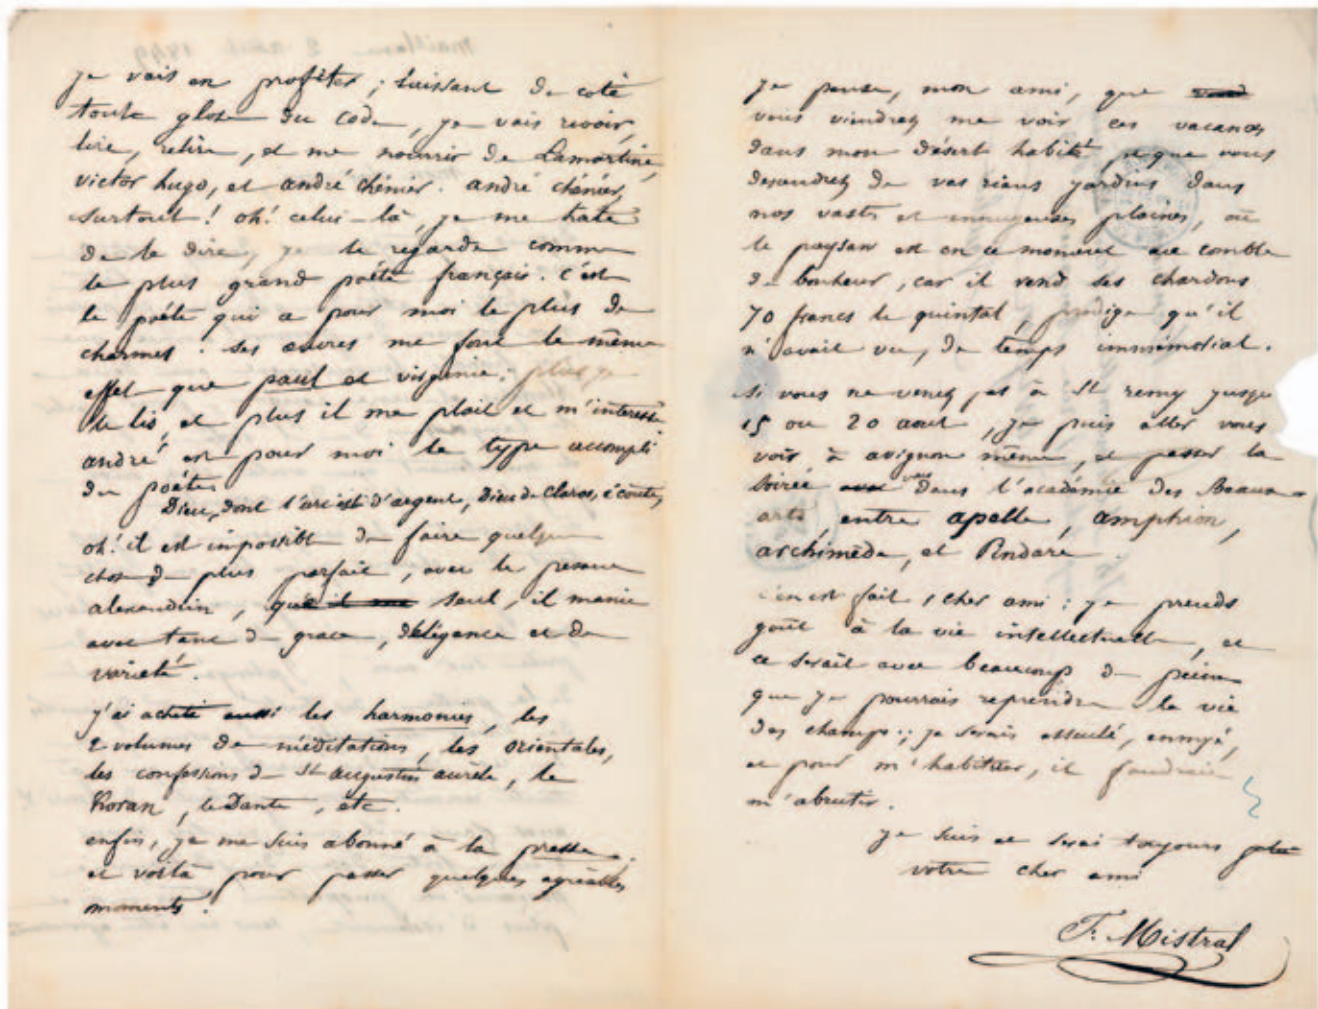 je vais en profiter ; laissant de coté
toute glose du code, je vais revoir,
lire, relire, et me nourrir de Lamartine,
victor hugo, et andré chénier. andré chénier,
surtout ! oh ! celui-là, je me hate
de le dire, je le regarde comme
le plus grand poéte français. c'est
le poéte qui a pour moi le plus de
charmes. ses œuvres me font le même
effet que paul et virginie; plus je
le lis, et plus il me plait et m'intéresse
andré est pour moi le type accompli
du poéte
Dieu, dont l'arc est d'argent, Dieu de Claros, écoute,
oh ! il est impossible de faire quelque
chose de plus parfait, avec le pesant
alexandrin, que il me seul, il manie
avec tant de grace, d'élégance et de
varieté.
j'ai acheté aussi les harmonies, les
2 volumes de méditations, les orientales,
les confessions de St augustin aurèle, le
Koran, le Dante, etc.
enfin, je me suis abonné à la presse,
et voilà pour passer quelques agréables
moments.
je pense, mon ami, que
vous viendrez me voir ces vacances
dans mon désert habité, que vous
descendrez de vos rians jardins dans
nos vastes et ennuyeuses plaines, où
le paysan est en ce moment au comble
de bonheur, car il vend ses chardons
70 francs le quintal, prodige qu'il
n'avait vu, de temps immémorial.
si vous ne venez pas à St remy jusqu
15 ou 20 aout, je puis aller vous
voir à avignon même, et passer la
soirée dans l'académie des Beaux-
arts, entre apelle, amphion,
archimède, et Pindare.
c'en est fait, cher ami : je prends
goût à la vie intellectuelle, et
ce serait avec beaucoup de peine
que je pourrais reprendre la vie
des champs ; je serais esseulé, ennuyé,
et pour m'habituer, il faudrait
m'abrutir.
je suis et serai toujours
votre cher ami
F. Mistral